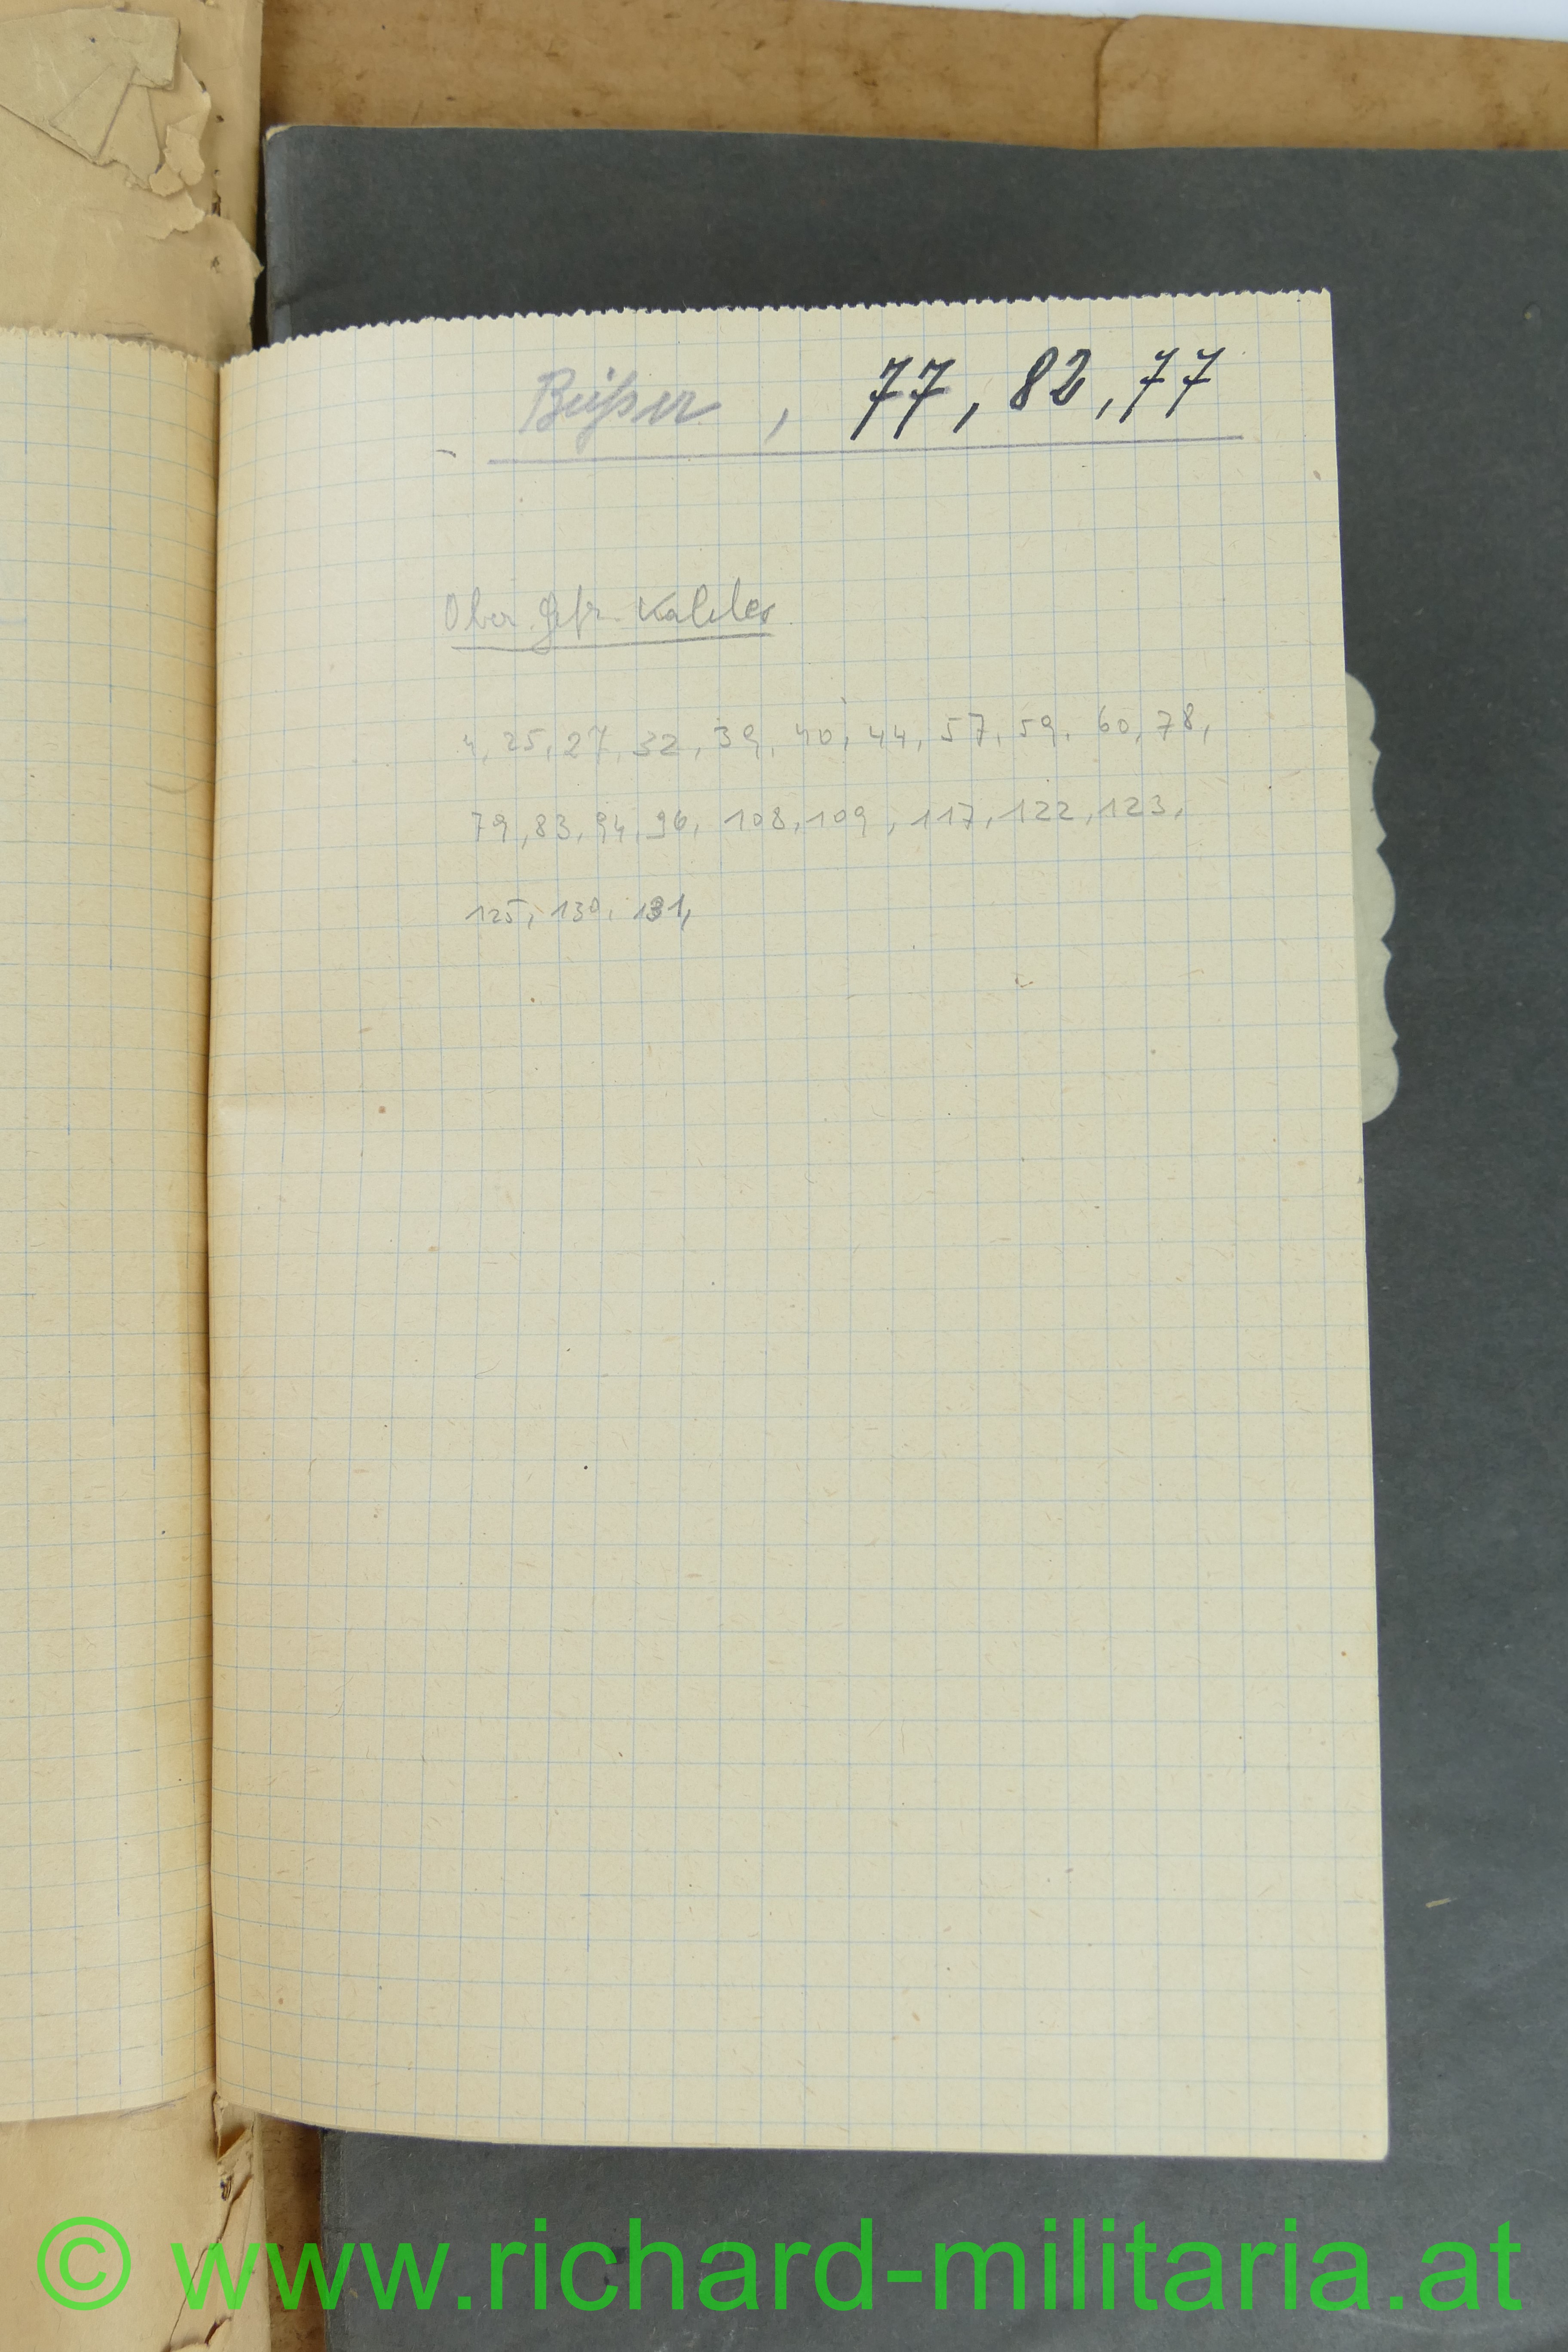 Büßer, 77, 82, 77
Ober. Gefr. Kahler
4, 25, 27, 32, 39, 40, 44, 57, 59, 60, 78,
79, 83, 94, 96, 108, 109, 117, 122, 123,
125, 130, 131,
© www.richard-militaria.at